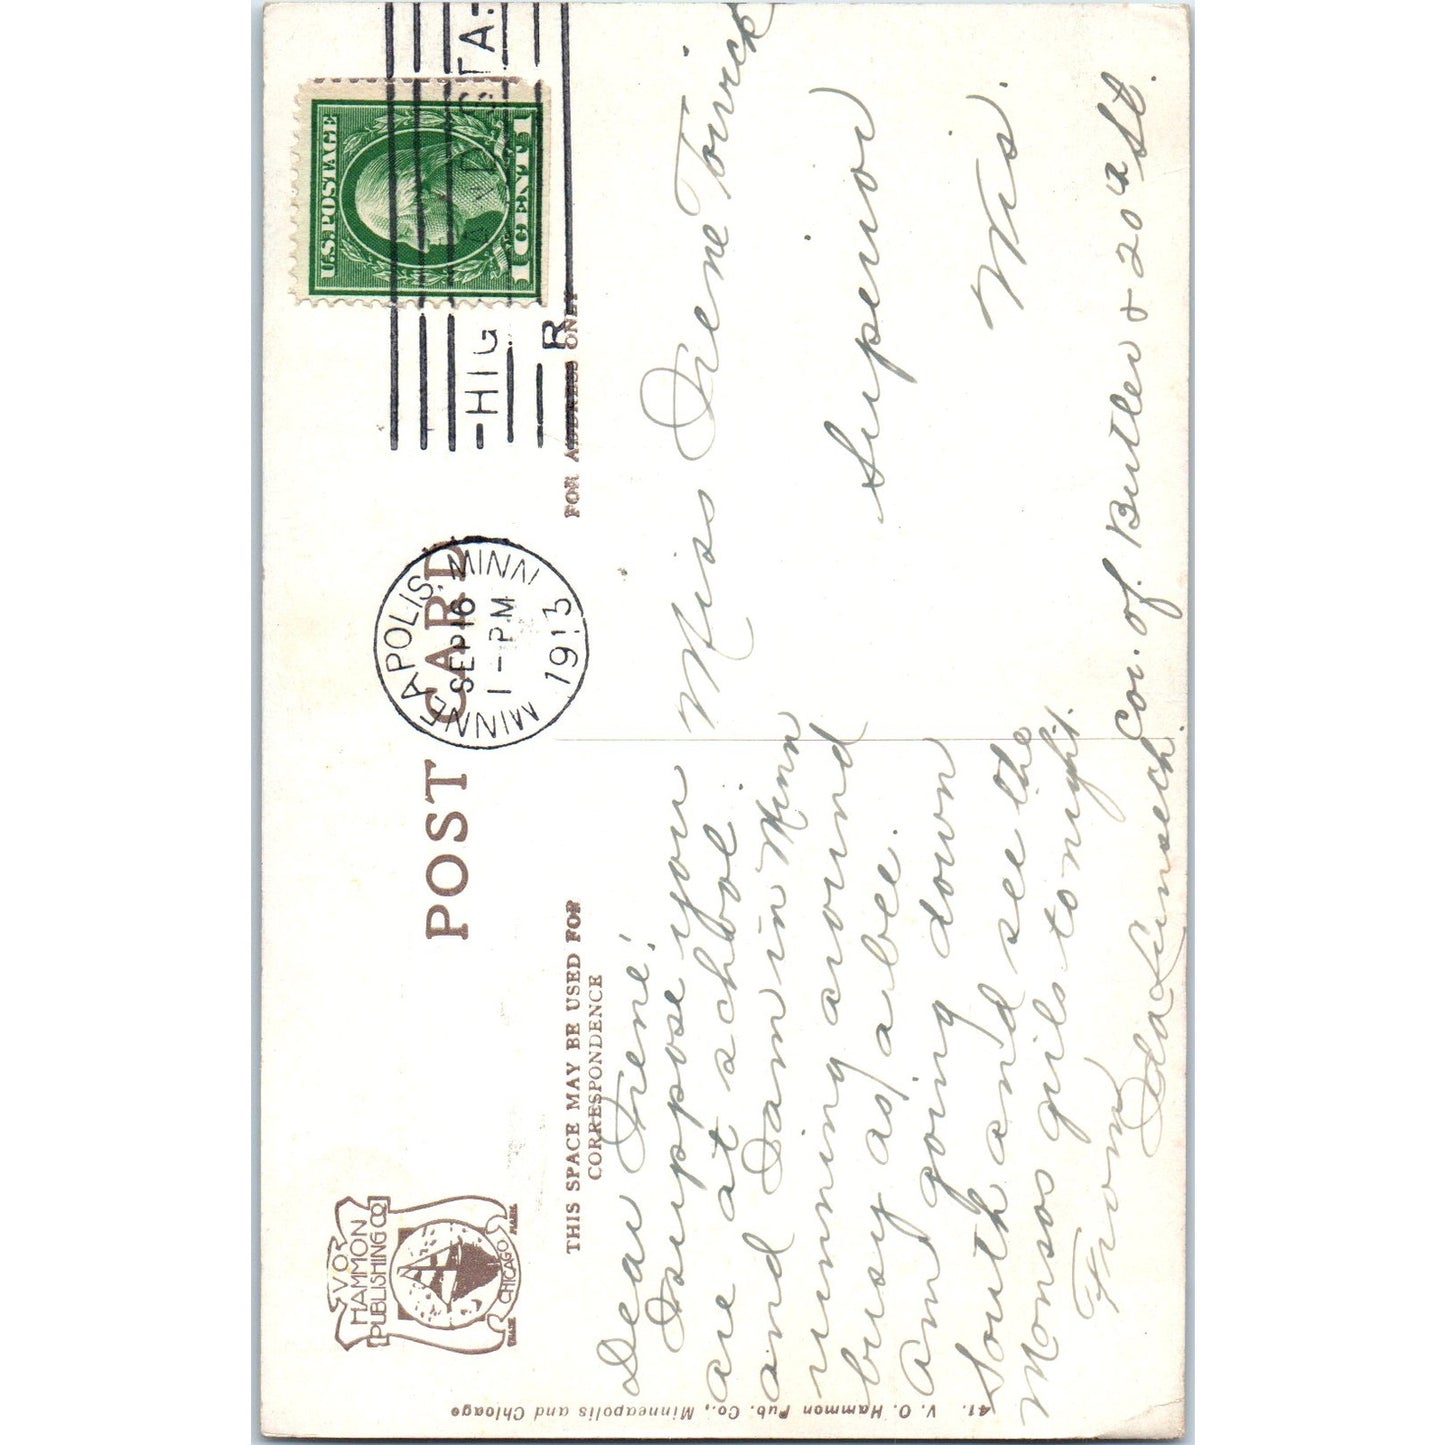 V.O.
HAMMON
PUBLISHING CO
CHICAGO
TRADE MARK
POST CARD
MINNEAPOLIS, MINN
SEP 16
1 - PM
1913
U.S. POSTAGE
1 CENT 1
THIS SPACE MAY BE USED FOR
CORRESPONDENCE
FOR ADDRESS ONLY
Dear Irene!
I suppose you
are at school
and I am in Minn
running around
busy as a bee.
Am going down
South and see the
Monsos girls tonight.
From
Ida
Miss Irene
Superior
Wis.
Cor. of Butler & 20th St.
41. V. O. Hammon Pub. Co., Minneapolis and Chicago